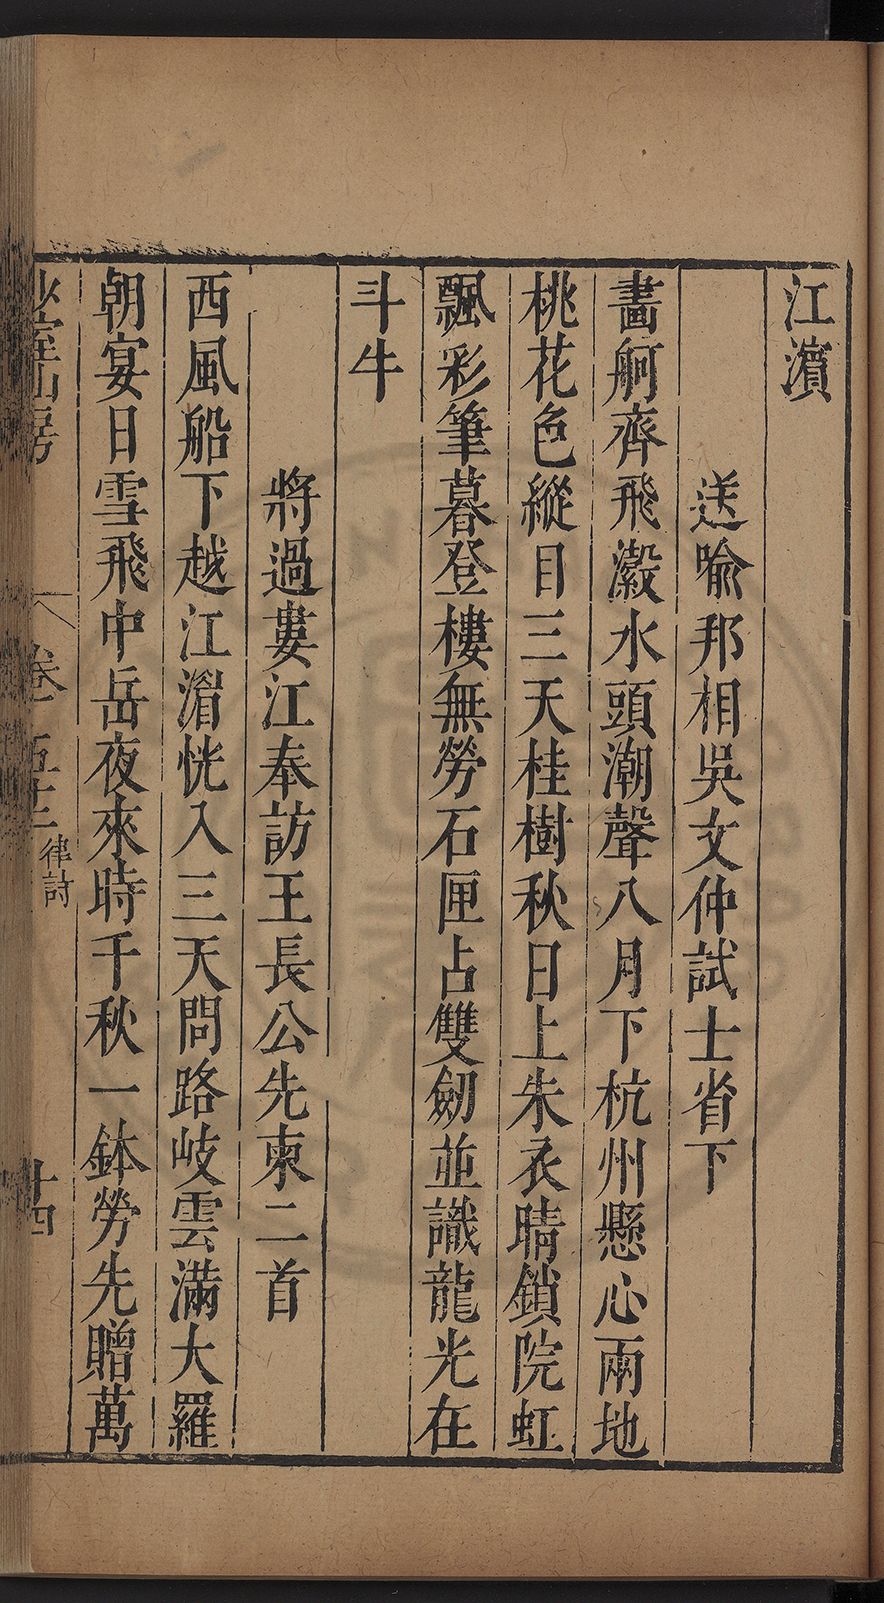 江濵
送喻邦相吳文仲試士省下
畵舸齊飛瀫水頭潮聲八月下杭州懸心兩地
桃花色縱目三天桂樹秋日上朱衣晴鎖院虹
飄彩筆暮登樓無勞石匣占雙劒並識龍光在
斗牛
將過婁江奉訪王長公先柬二首
西風船下越江湄恍入三天問路岐雲滿大羅
朝宴日雪飛中岳夜來時千秋一鉢勞先贈萬
室山房
卷
律詩
十四